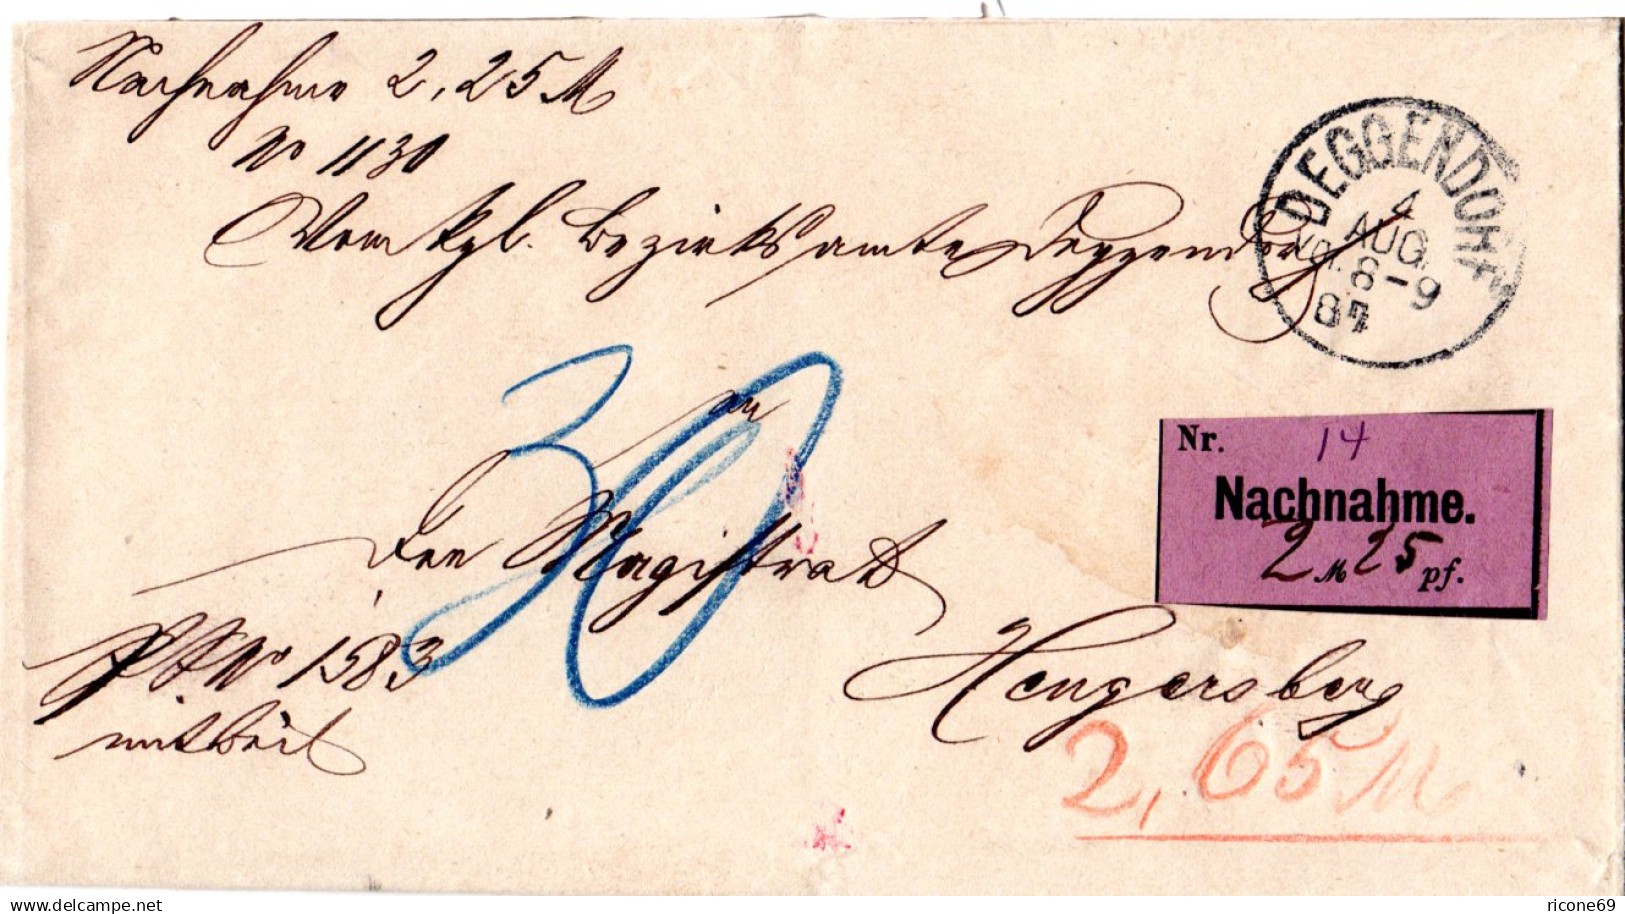 Nachnahme 2,25 M
No 1130
Vom kgl. Bezirksamte Deggendorf
DEGGENDORF
4
AUG.
8-9
87
30
an
Nr. 14
Nachnahme.
2 M 25 pf.
den Magistrat
No 1583
Hengersberg
2,65 M
www.delcampe.net
ricone69